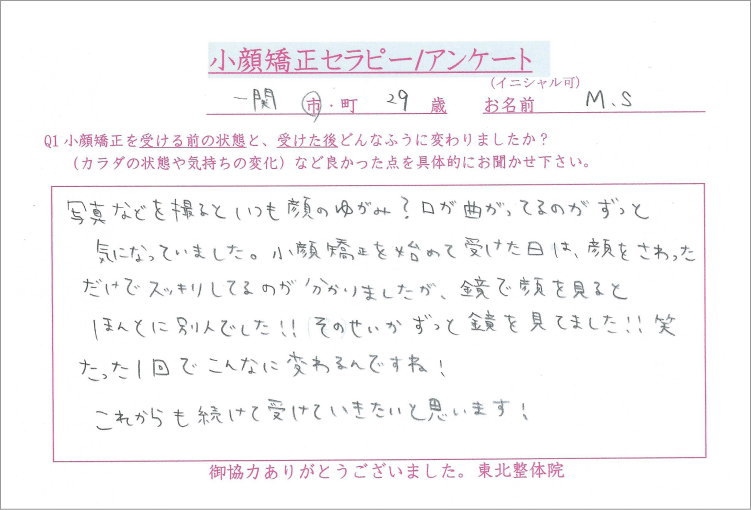 小顔矯正セラピー/アンケート
(イニシャル可)
一関 市・町 29 歳 お名前 M.S
Q1 小顔矯正を受ける前の状態と、受けた後どんなふうに変わりましたか？
（カラダの状態や気持ちの変化）など良かった点を具体的にお聞かせ下さい。
写真などを撮るといつも顔のゆがみ？口が曲がってるのがずっと
気になっていました。小顔矯正を始めて受けた日は、顔をさわった
だけでスッキリしてるのが分かりましたが、鏡で顔を見ると
ほんとに別人でした!! そのせいかずっと鏡を見てました!! 笑
たった1回でこんなに変わるんですね!
これからも続けて受けていきたいと思います!
御協力ありがとうございました。東北整体院